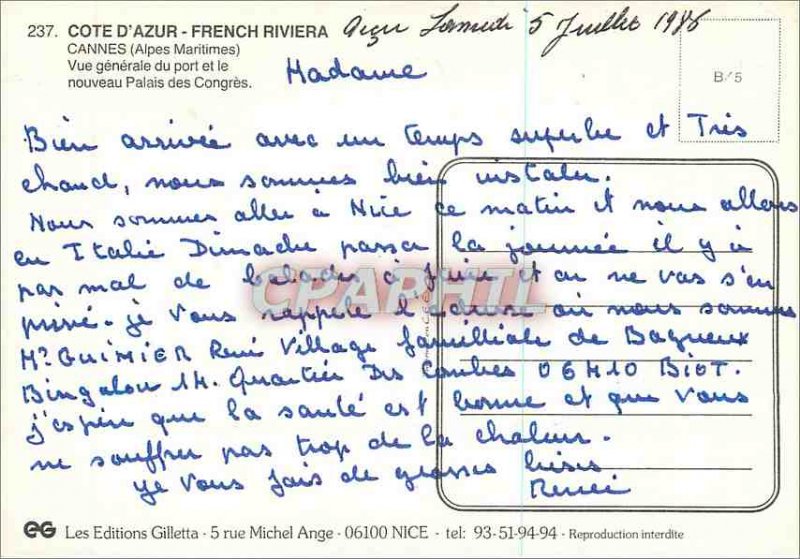 237. COTE D'AZUR - FRENCH RIVIERA
CANNES (Alpes Maritimes)
Vue générale du port et le
nouveau Palais des Congrès.
Samedi 5 Juillet 1986
B/5
Madame
Bien arrivée avec un temps superbe et Très
chaud, nous sommes bien instaler.
Nous sommes aller à Nice ce matin et nous allons
en Italie Dimache passa la journée il y à
pas mal de balades à faire et on ne vas s'en
privé. je vous rappele l'adresse où nous sommes
Mr. GUIMIER René Village familliale de Bagneux
Bingalou 14. Quartier Des Combes 06410 BIOT.
j'espère que la santé est bonne et que vous
ne souffrer pas trop de la chaleur.
je vous fais de grosses bises
Renée
CPARHIL
EG Les Editions Gilletta - 5 rue Michel Ange - 06100 NICE - tel: 93-51-94-94 - Reproduction interdite